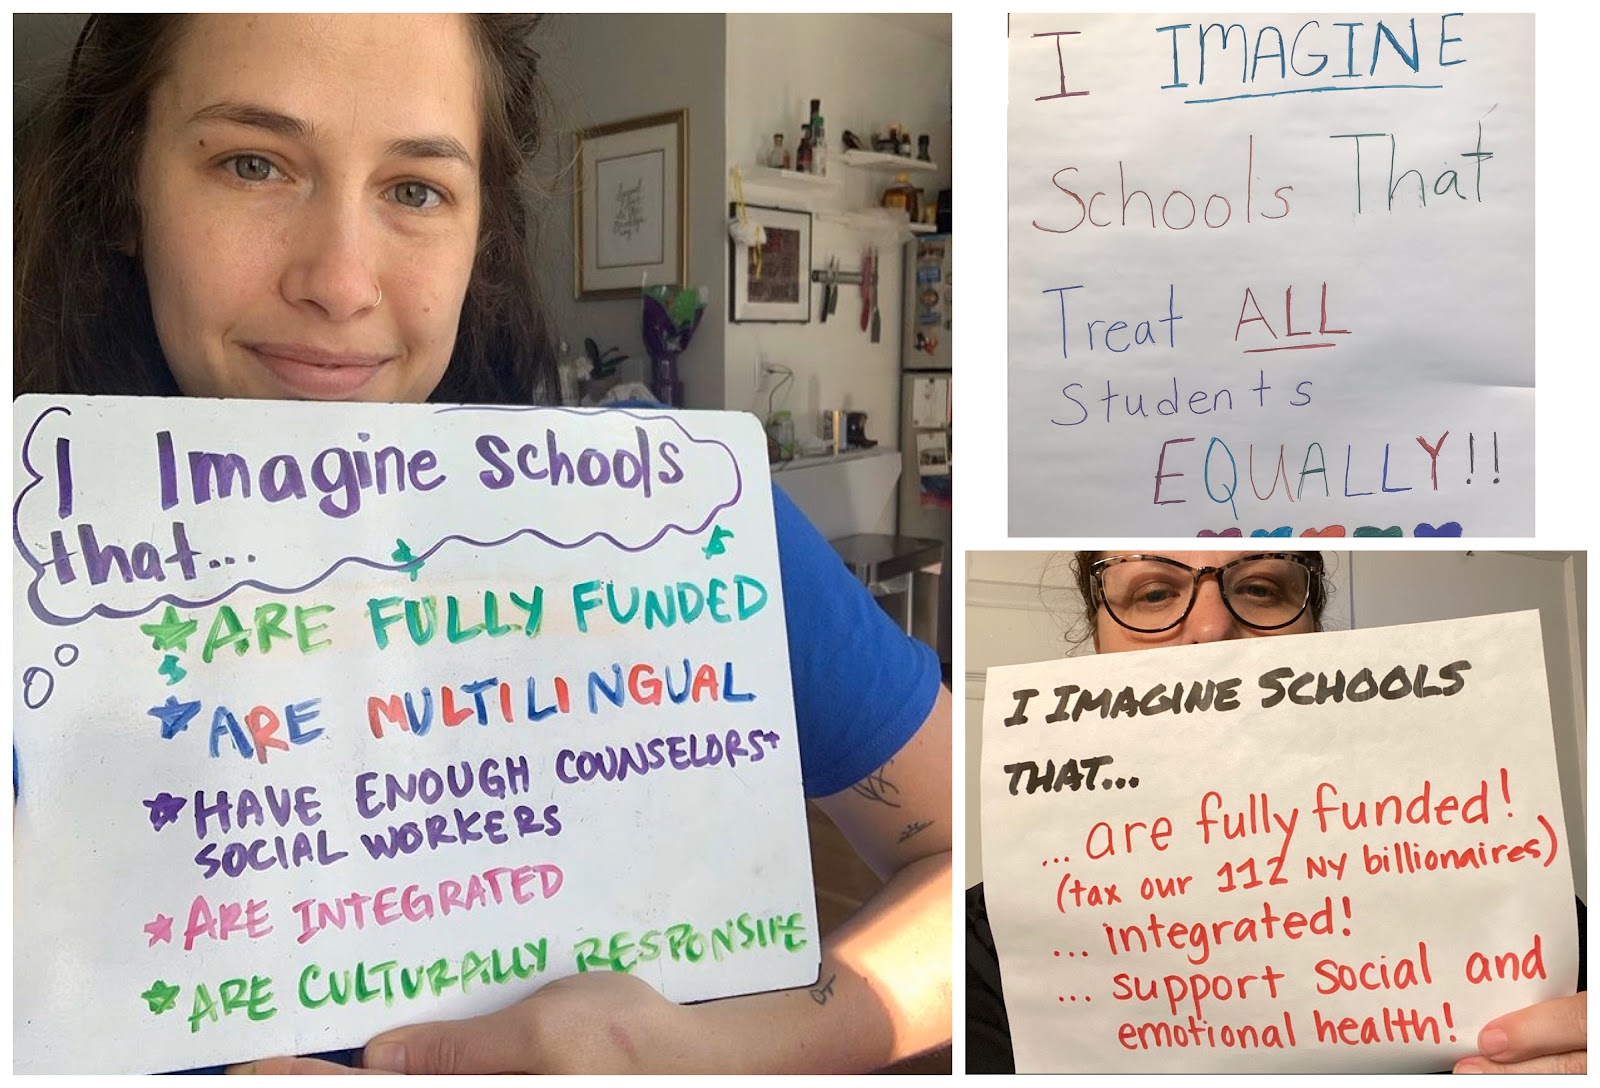 I Imagine Schools
that...
ARE FULLY FUNDED
ARE MULTILINGUAL
HAVE ENOUGH COUNSELORS+
SOCIAL WORKERS
ARE INTEGRATED
ARE CULTURALLY RESPONSIVE
I IMAGINE
Schools That
Treat ALL
Students
EQUALLY!!
I IMAGINE SCHOOLS
THAT...
...are fully funded!
(tax our 112 NY billionaires)
... integrated!
... support social and
emotional health!